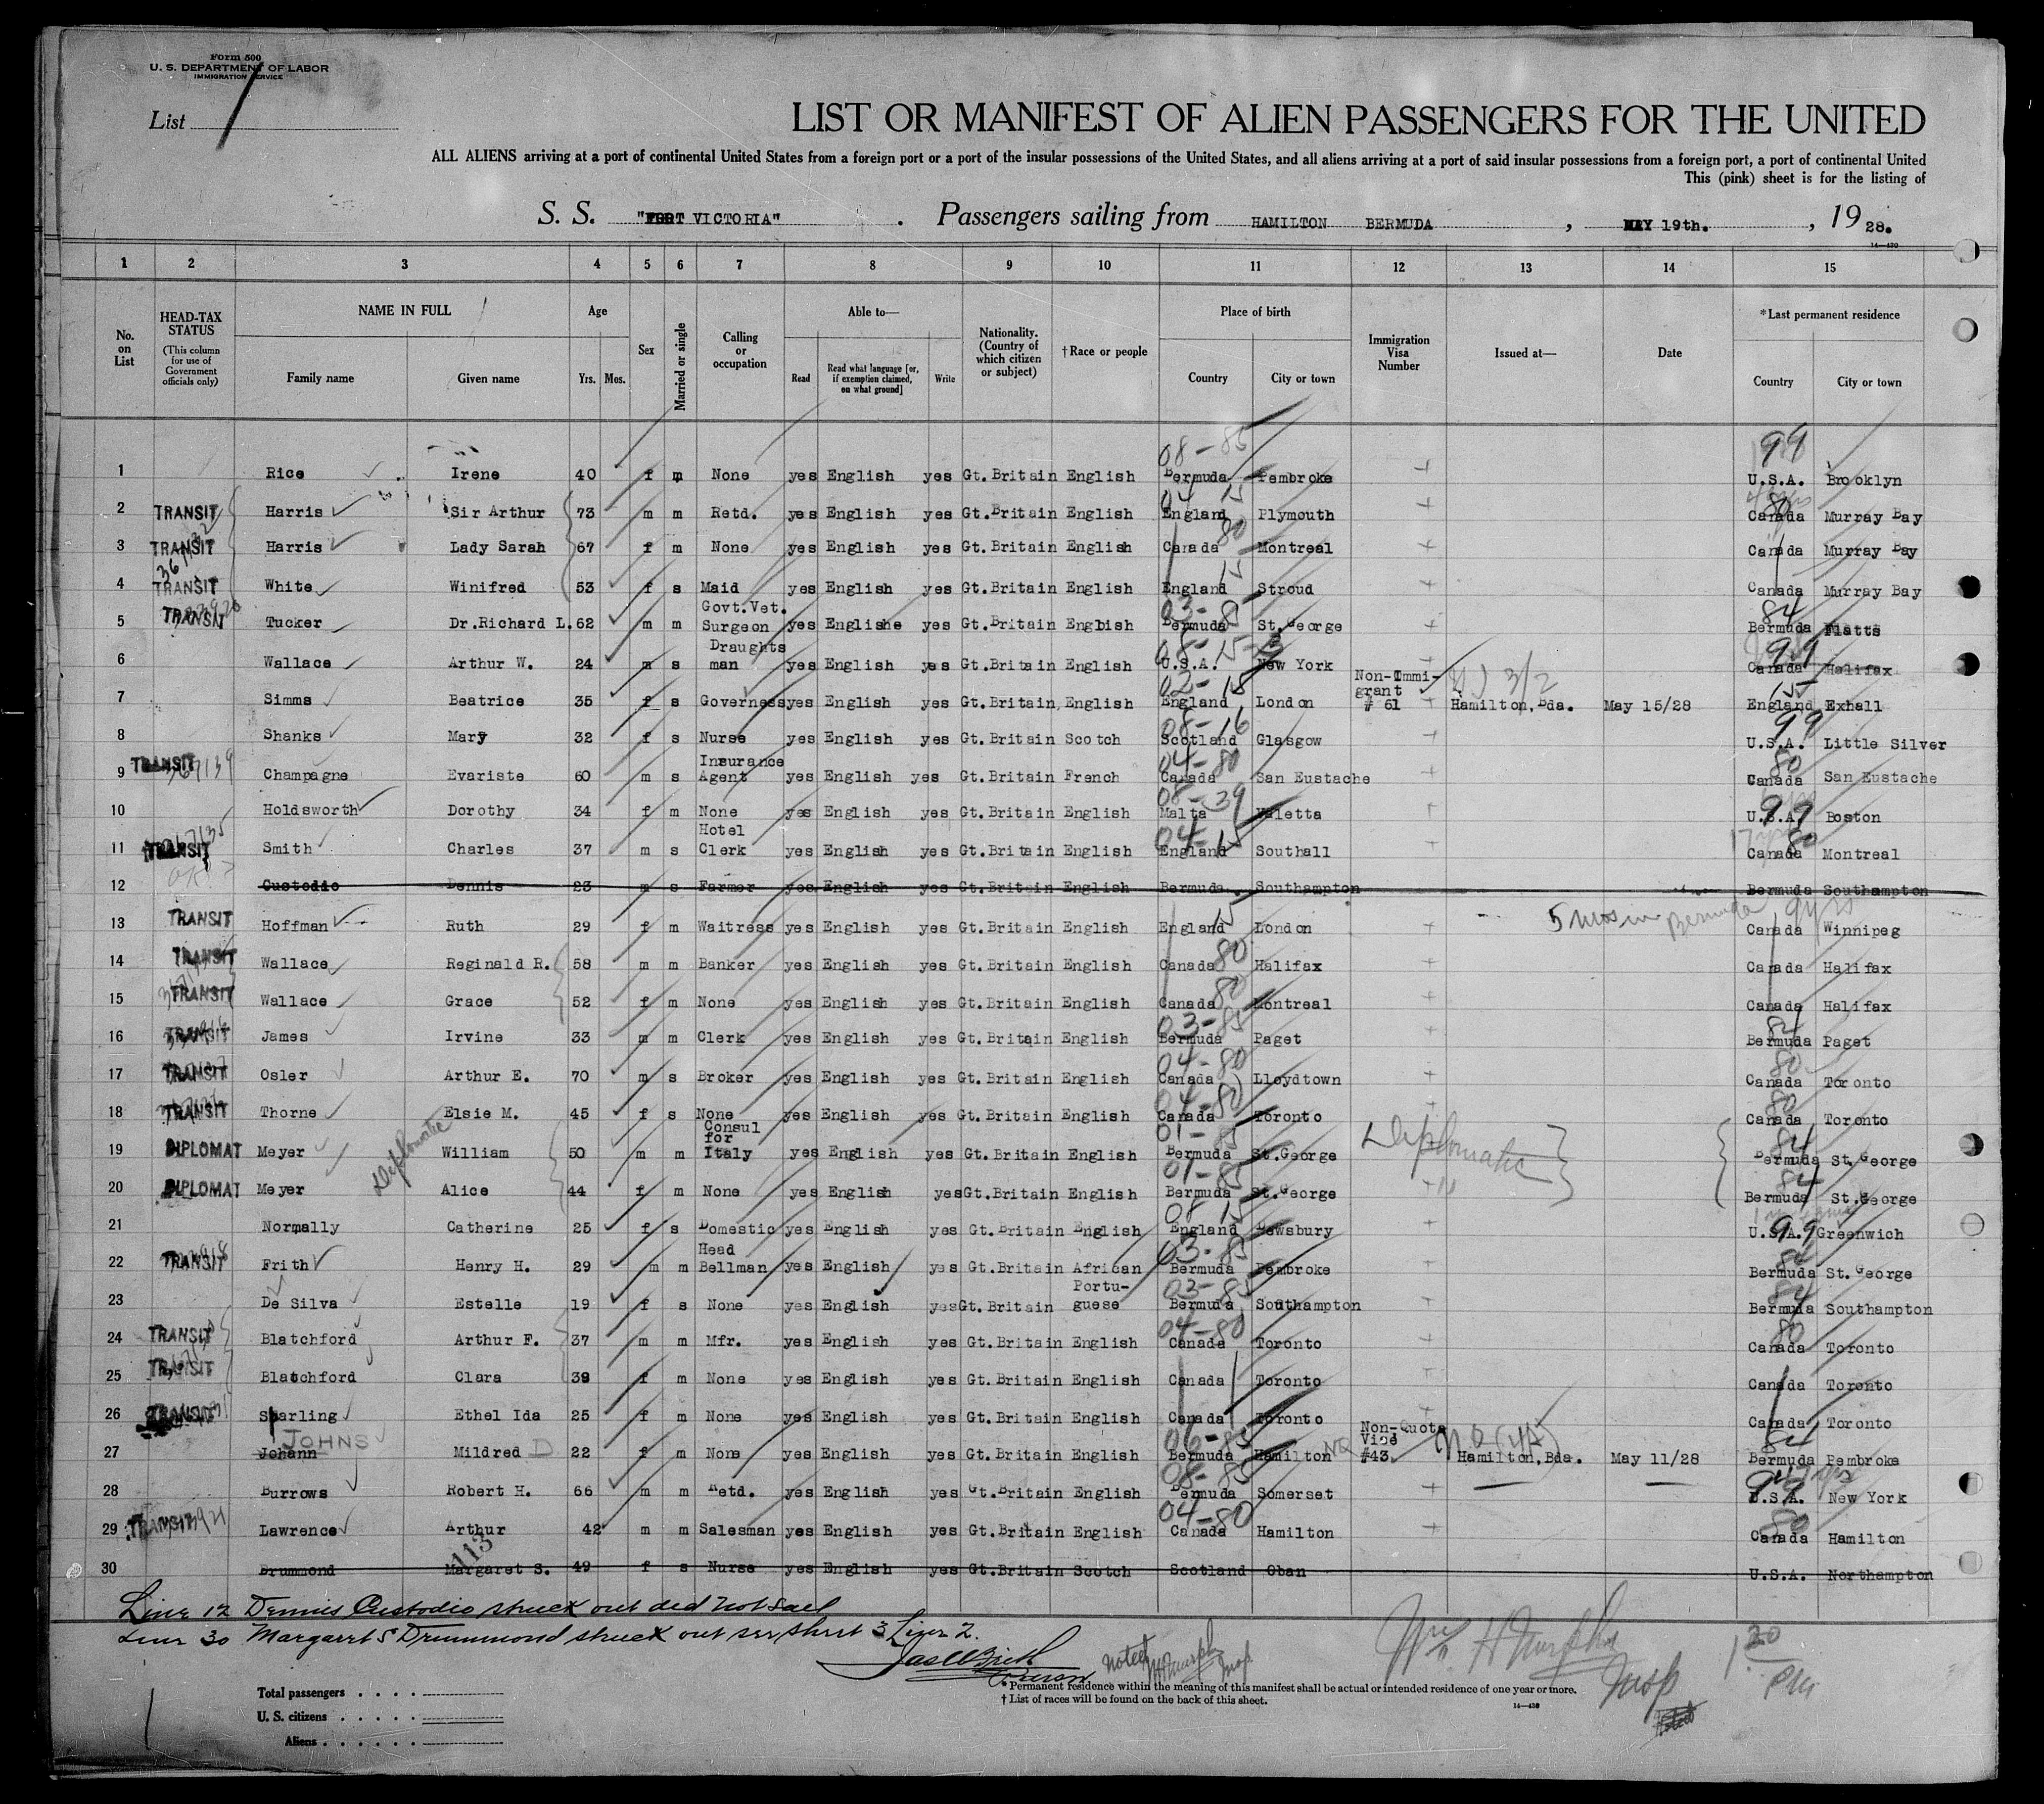 Form 500
U. S. DEPARTMENT OF LABOR
IMMIGRATION SERVICE
List
LIST OR MANIFEST OF ALIEN PASSENGERS FOR THE UNITED
ALL ALIENS arriving at a port of continental United States from a foreign port or a port of the insular possessions of the United States, and all aliens arriving at a port of said insular possessions from a foreign port, a port of continental United
This (pink) sheet is for the listing of
S. S. "FORT VICTORIA" . Passengers sailing from HAMILTON BERMUDA , MAY 19th. , 1928.
14—430
1 2 3 4 5 6 7 8 9 10 11 12 13 14 15
No. on List
HEAD-TAX STATUS
(This column for use of Government officials only)
NAME IN FULL
Family name Given name
Age
Yrs. Mos.
Sex
Married or single
Calling or occupation
Able to—
Read Read what language [or, if exemption claimed, on what ground] Write
Nationality. (Country of which citizen or subject)
† Race or people
Place of birth
Country City or town
Immigration Visa Number
Issued at—
Date
* Last permanent residence
Country City or town
08-85 99
1 Rice Irene 40 f m None yes English yes Gt.Britain English Bermuda Pembroke U.S.A. Brooklyn
04 15 80
2 TRANSIT Harris Sir Arthur 73 m m Retd. yes English yes Gt.Britain English England Plymouth Canada Murray Bay
80
3 TRANSIT Harris Lady Sarah 67 f m None yes English yes Gt.Britain English Canada Montreal Canada Murray Bay
15
4 TRANSIT White Winifred 53 f s Maid yes English yes Gt.Britain English England Stroud Canada Murray Bay
03-85 84
5 TRANSIT Tucker Dr.Richard L. 62 m m Govt.Vet. Surgeon yes Englishe yes Gt.Britain Engbish Bermuda St.George Bermuda Flatts
99
6 Wallace Arthur W. 24 m s Draughts man yes English yes Gt.Britain English U.S.A. New York Canada Halifax
02-15 15
7 Simms Beatrice 35 f s Governess yes English yes Gt.Britain English England London Non-Immi-grant # 61 Hamilton,Bda. May 15/28 England Exhall
08-16 99
8 Shanks Mary 32 f s Nurse yes English yes Gt.Britain Scotch Scotland Glasgow U.S.A. Little Silver
04-80 80
9 TRANSIT 367139 Champagne Evariste 60 m s Insurance Agent yes English yes Gt.Britain French Canada San Eustache Canada San Eustache
08-39 99
10 Holdsworth Dorothy 34 f m None yes English yes Gt.Britain English Malta Valetta U.S.A. Boston
04-15 80
11 TRANSIT Smith Charles 37 m s Hotel Clerk yes English yes Gt.Britain English England Southall Canada Montreal
12 Custodio Dennis 23 m s Farmer yes English yes Gt.Britain English Bermuda Southampton Bermuda Southampton
15 5 mos in Bermuda
13 TRANSIT Hoffman Ruth 29 f m Waitress yes English yes Gt.Britain English England London Canada Winnipeg
80
14 TRANSIT Wallace Reginald R. 58 m m Banker yes English yes Gt.Britain English Canada Halifax Canada Halifax
80
15 TRANSIT Wallace Grace 52 f m None yes English yes Gt.Britain English Canada Montreal Canada Halifax
03-85 84
16 TRANSIT James Irvine 33 m m Clerk yes English yes Gt.Britain English Bermuda Paget Bermuda Paget
04-80 80
17 TRANSIT Osler Arthur E. 70 m s Broker yes English yes Gt.Britain English Canada Lloydtown Canada Toronto
04-80 80
18 TRANSIT Thorne Elsie M. 45 f s None yes English yes Gt.Britain English Canada Toronto Canada Toronto
Diplomatic 01-85 Diplomatic 84
19 DIPLOMAT Meyer William 50 m m Consul for Italy yes English yes Gt.Britain English Bermuda St.George Bermuda St.George
01-85 84
20 DIPLOMAT Meyer Alice 44 f m None yes English yes Gt.Britain English Bermuda St.George Bermuda St.George
08 15 99
21 Normally Catherine 25 f s Domestic yes English yes Gt.Britain English England Dewsbury U.S.A. Greenwich
03-85 84
22 TRANSIT Frith Henry H. 29 m m Head Bellman yes English yes Gt.Britain African Bermuda Pembroke Bermuda St.George
03-85 84
23 De Silva Estelle 19 f s None yes English yes Gt.Britain Portu-guese Bermuda Southampton Bermuda Southampton
04-80 80
24 TRANSIT Blatchford Arthur F. 37 m m Mfr. yes English yes Gt.Britain English Canada Toronto Canada Toronto
25 TRANSIT Blatchford Clara 39 f m None yes English yes Gt.Britain English Canada Toronto Canada Toronto
26 TRANSIT Sparling Ethel Ida 25 f m None yes English yes Gt.Britain English Canada Toronto Canada Toronto
JOHNS 06-85 84
27 Johann Mildred D 22 f m None yes English yes Gt.Britain English Bermuda Hamilton NQ Non-Quota Vice #43 Hamilton,Bda. May 11/28 Bermuda Pembroke
08-85 99
28 Burrows Robert H. 66 m m Retd. yes English yes Gt.Britain English Bermuda Somerset U.S.A. New York
04-80 80
29 TRANSIT Lawrence Arthur 42 m m Salesman yes English yes Gt.Britain English Canada Hamilton Canada Hamilton
113
30 Drummond Margaret S. 49 f s Nurse yes English yes Gt.Britain Scotch Scotland Oban U.S.A. Northampton
Line 12 Dennis Custodio struck out did not sail
Line 30 Margaret S Drummond struck out see sheet 3 Line 2.
Noted
Wm. H Murphy
Insp
1 20 PM
Total passengers . . . .
U. S. citizens . . . . .
Aliens . . . . . .
* Permanent residence within the meaning of this manifest shall be actual or intended residence of one year or more.
† List of races will be found on the back of this sheet.
14—430